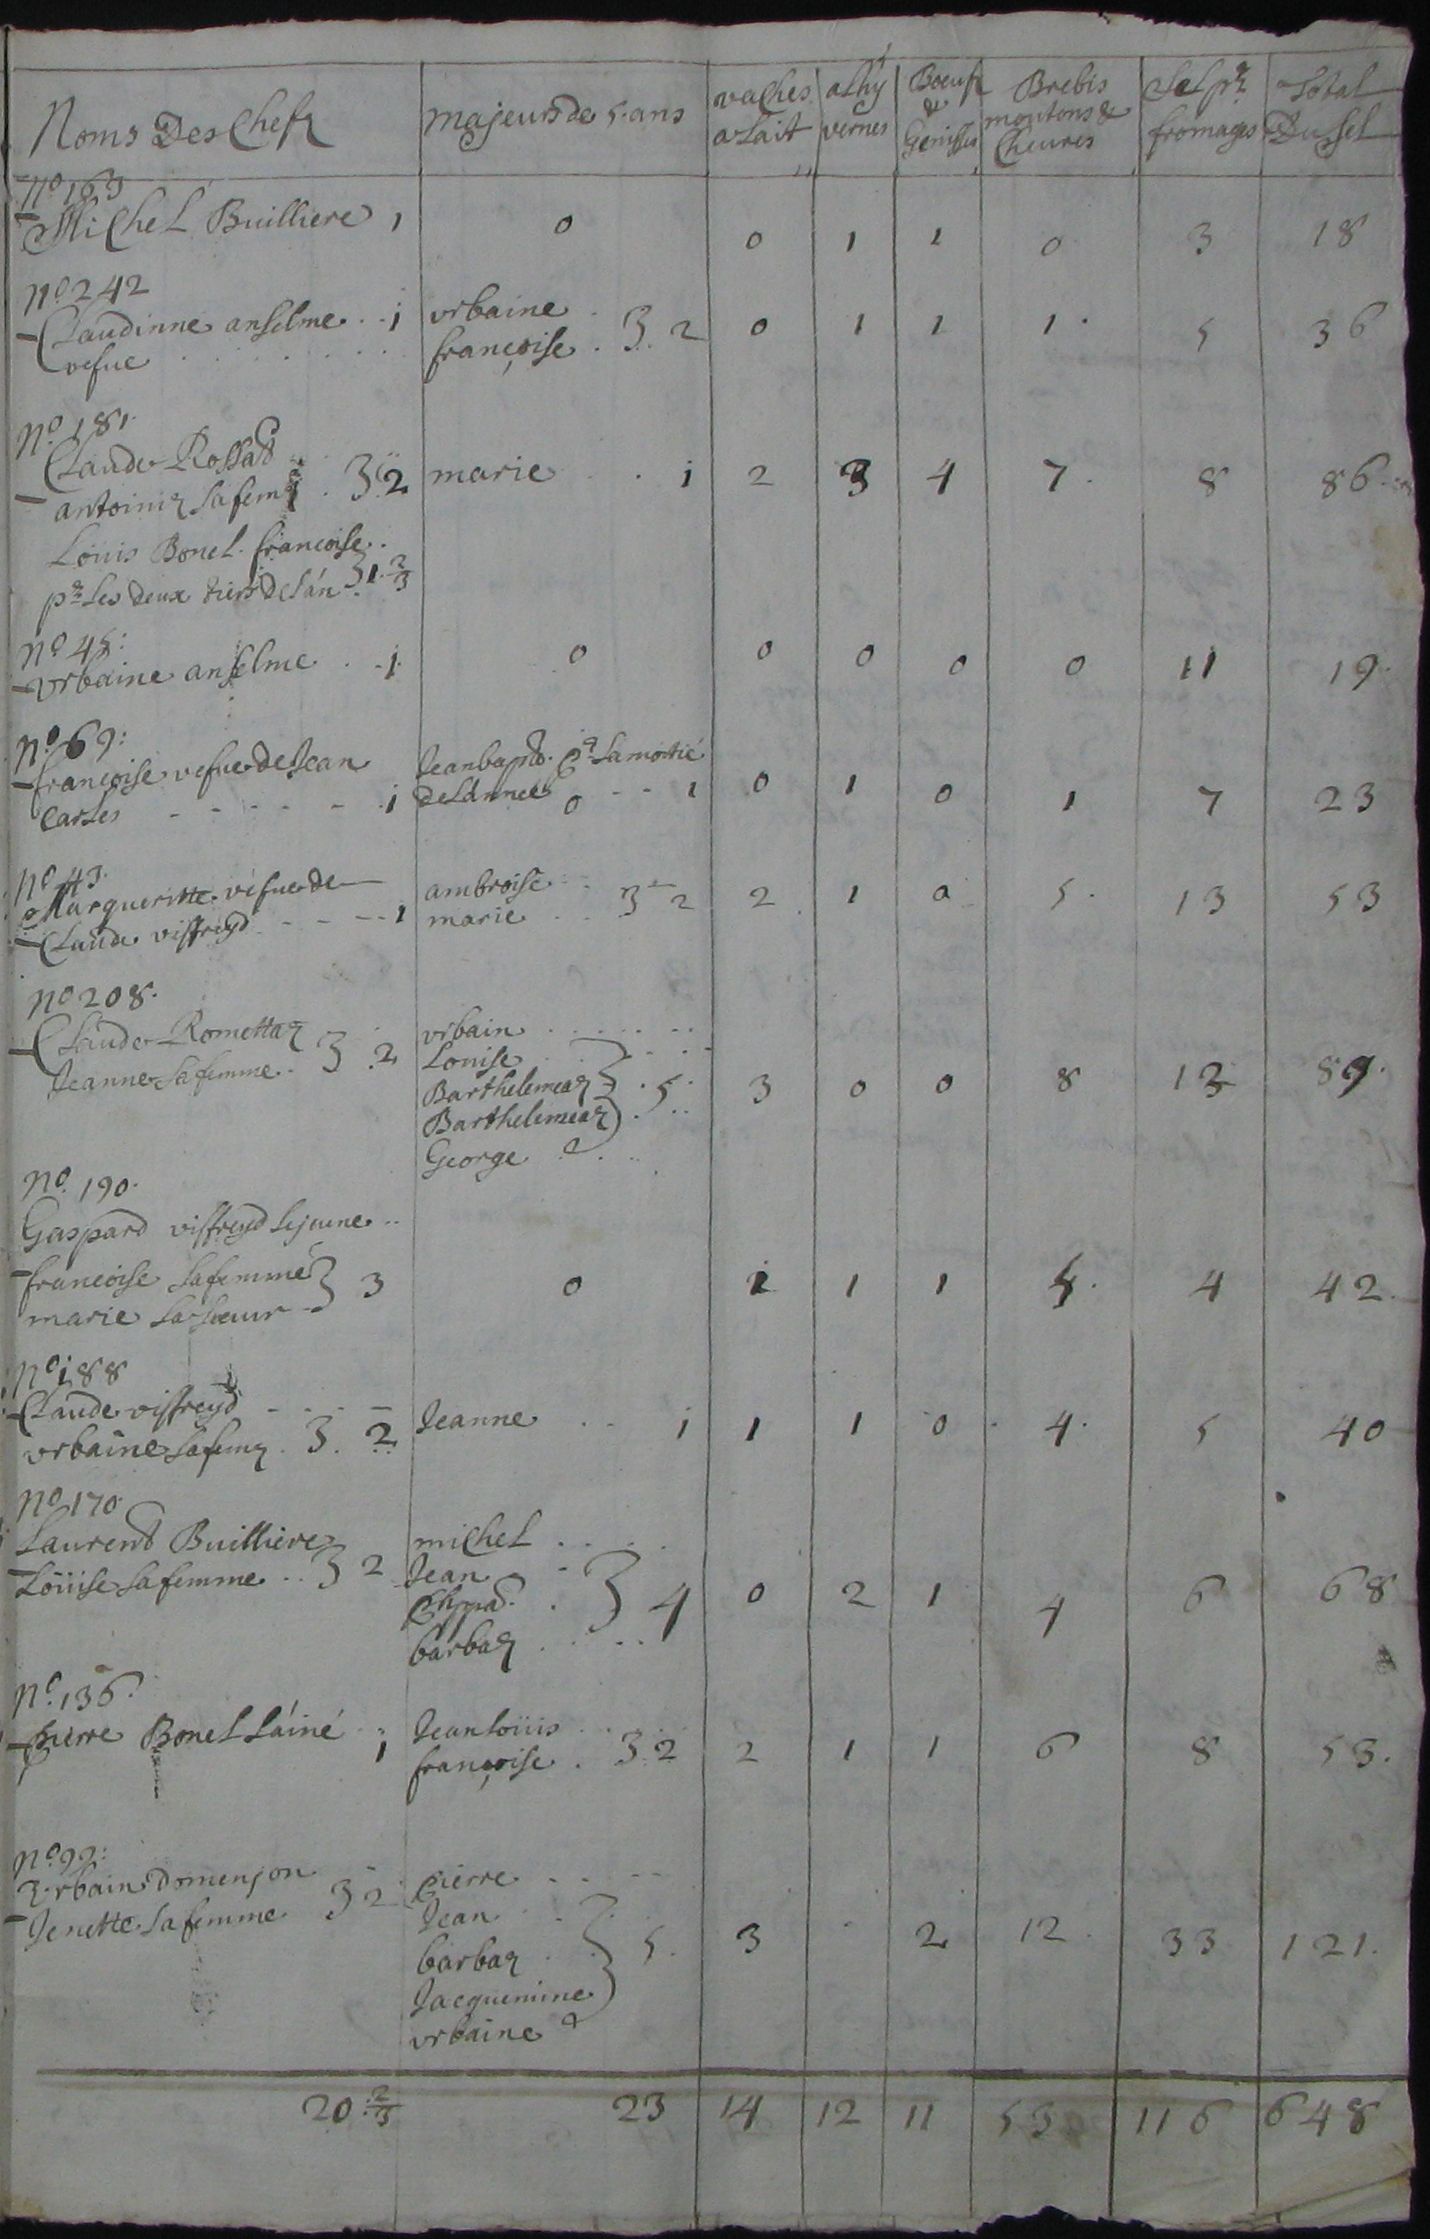 Noms Des Chefz majeurs de 5 ans vaches a Lait vernes Boeufs & Genisses Brebis moutons & Cheures Sel pr fromages Total Du Sel
No 163
Michel Builliere 1 0 0 1 1 0 3 18
No 242
Claudinne anselme 1 vrbaine
vefue françoise 2 0 1 1 1 5 36
No 181
Claude Rossat
antoinia sa feme 2 marie 1 2 3 4 7 8 86
Louis Bonel françoise
pr Les deux tiers de L'an 1 2/3
No 45
vrbaine anselme 1 0 0 0 0 0 11 19
No 69
françoise vefue de Jean Jean bapt. pr La moitié
Carles 1 de L'année 0 1 0 1 0 1 7 23
No 43
Margueritte vefue de ambroise
Claude viffreyd 1 marie 2 2 1 0 5 13 53
No 208
Claude Romettaz 2 vrbain
Jeanne sa femme Louise
Barthelemeaz 5 3 0 0 8 13 89
Barthelemeaz
George
No 190
Gaspard viffreyd Le jeune
françoise sa femme 3 0 1 1 1 5 4 42
marie sa soeur
No 188
Claude viffreyd
vrbaine sa feme 2 Jeanne 1 1 1 0 4 5 40
No 170
Laurend Builliere michel
Loüise sa femme 2 Jean
4 0 2 1 4 6 68
barbaz
No 136
pierre Bonel L'ainé 1 Jean Loüis
françoise 2 2 1 1 6 8 53
No 99
Vrbain Domenjon pierre
Jenette sa femme 2 Jean
barbaz 5 3 2 12 33 121
Jacquemine
vrbaine
20 2/3 23 14 12 11 53 116 648